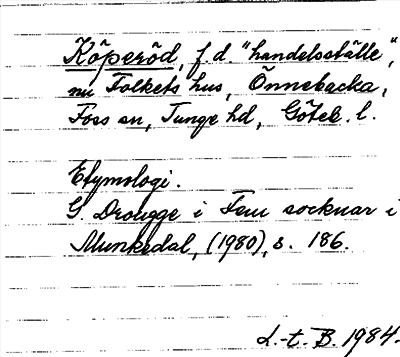 Köperöd, f.d. "handelsställe",
nu Folkets hus, Önnebacka,
Foss sn, Tunge hd, Göteb. l.
Etymologi.
G. Drougge i Fem socknar i
Munkedal, (1980), s. 186.
L.-t. B. 1984.